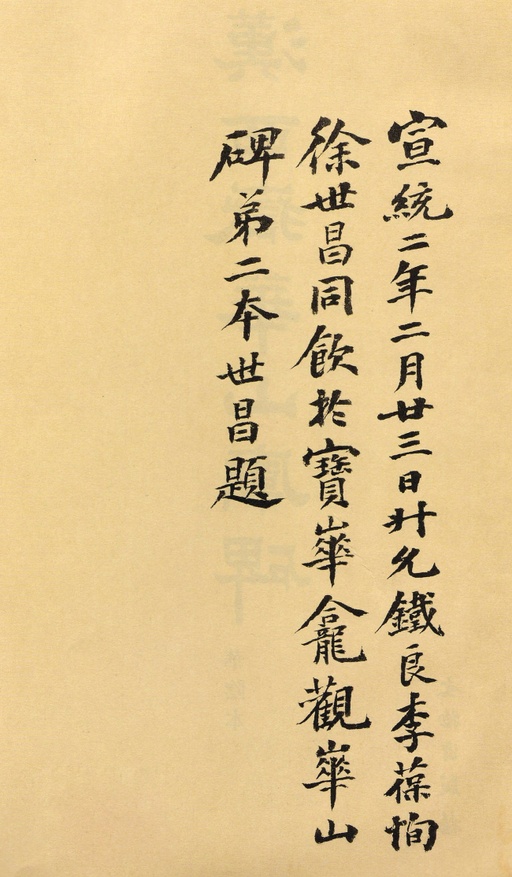 宣統二年二月廿三日升允鐵良李葆恂
徐世昌同飲於寶華龕觀華山
碑弟二本世昌題